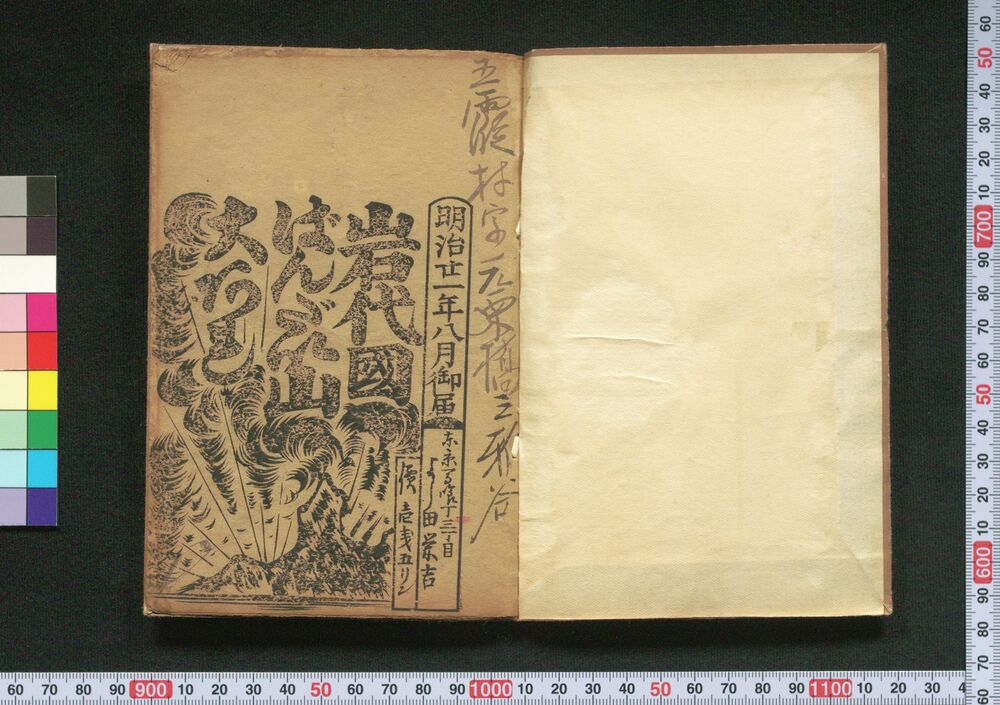 五霞村字元栗橋三ツ谷
明治廿一年八月御届
東京下谷二丁目
よし田栄吉
價壱戔五リン
岩代國
ばんだい山
大ふんくわ
60 70 80 90 900 10 20 30 40 50 60 70 80 90 1000 10 20 30 40 50 60 70 80 90 1100 10 20 30 4
60 50 40 30 20 10 700 90 80 70 60 50 40 30 20 10 600 90 80 70 60